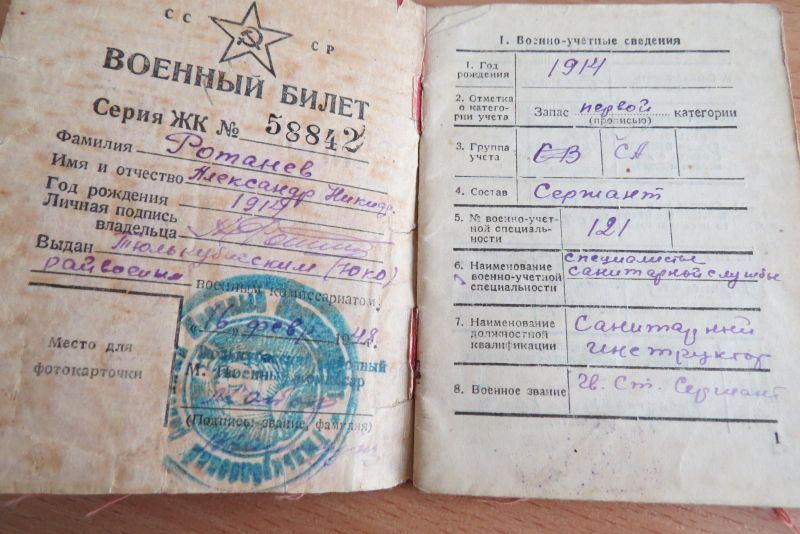 СС
СР
ВОЕННЫЙ БИЛЕТ
Серия ЖК № 58842
Фамилия Ротанев
Имя и отчество Александр Никидр.
Год рождения 1914
Личная подпись
владельца
Выдан Тюлькубасским (ЮКО)
райвоенным
военным комиссариатом.
"16" февр 1948 г.
Место для
фотокарточки
М. П. Военный комиссар
(Подпись, звание, фамилия)
I. Военно-учетные сведения
1. Год
рождения
1914
2. Отметка
о катего-
рии учета
Запас первой категории
(прописью)
3. Группа
учета
ВВ СА
4. Состав Сержант
5. № военно-учет-
ной специаль-
ности
121
6. Наименование
военно-учетной
специальности
специалисты
санитарной службы
7. Наименование
должностной
квалификации
Санитарный
инструктор
8. Военное звание Гв. Ст. Сержант
1